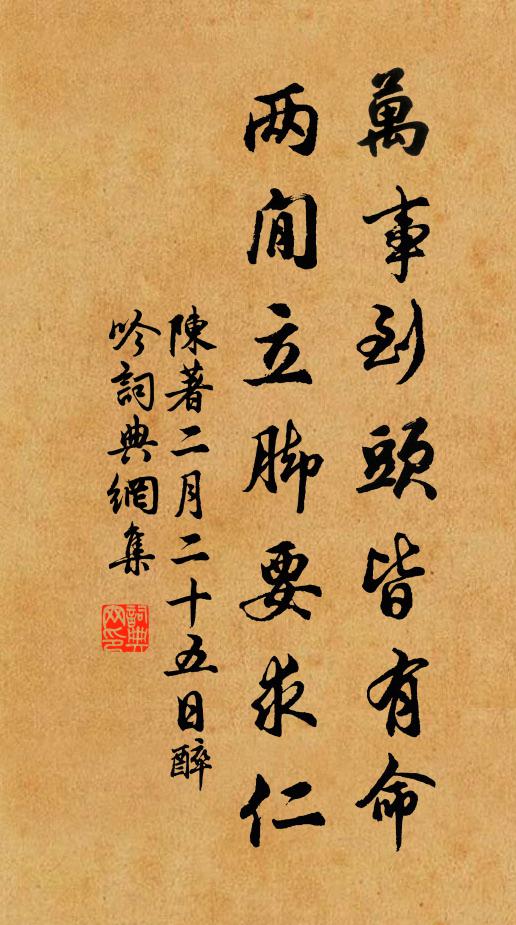 萬事到頭皆有命
两間立脚要求仁
陳著二月二十五日醉
吟詞典網集
詞典网印